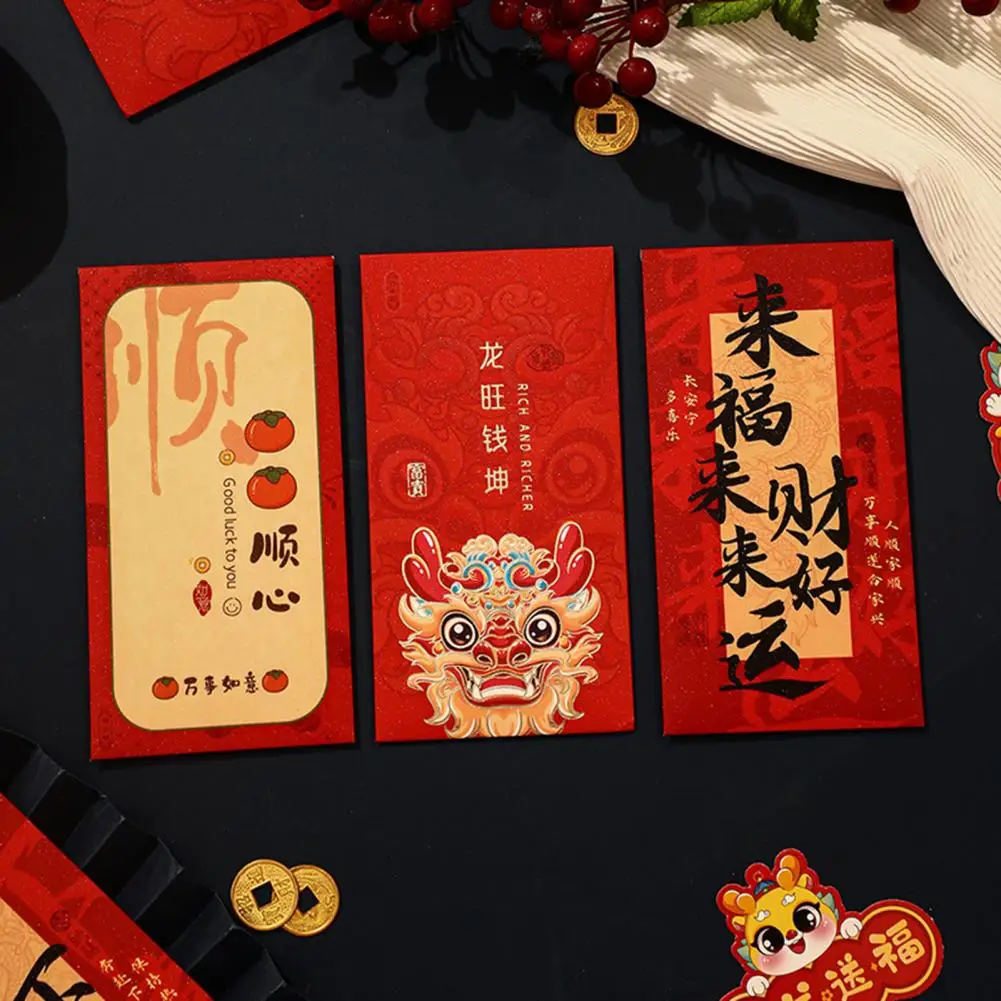 顺
Good luck to you
顺
心
万事如意
龙旺钱坤
RICH AND RICHER
富贵
来福来财
来好运
长安宁
多喜乐
人顺家顺
万事顺遂合家兴
送福